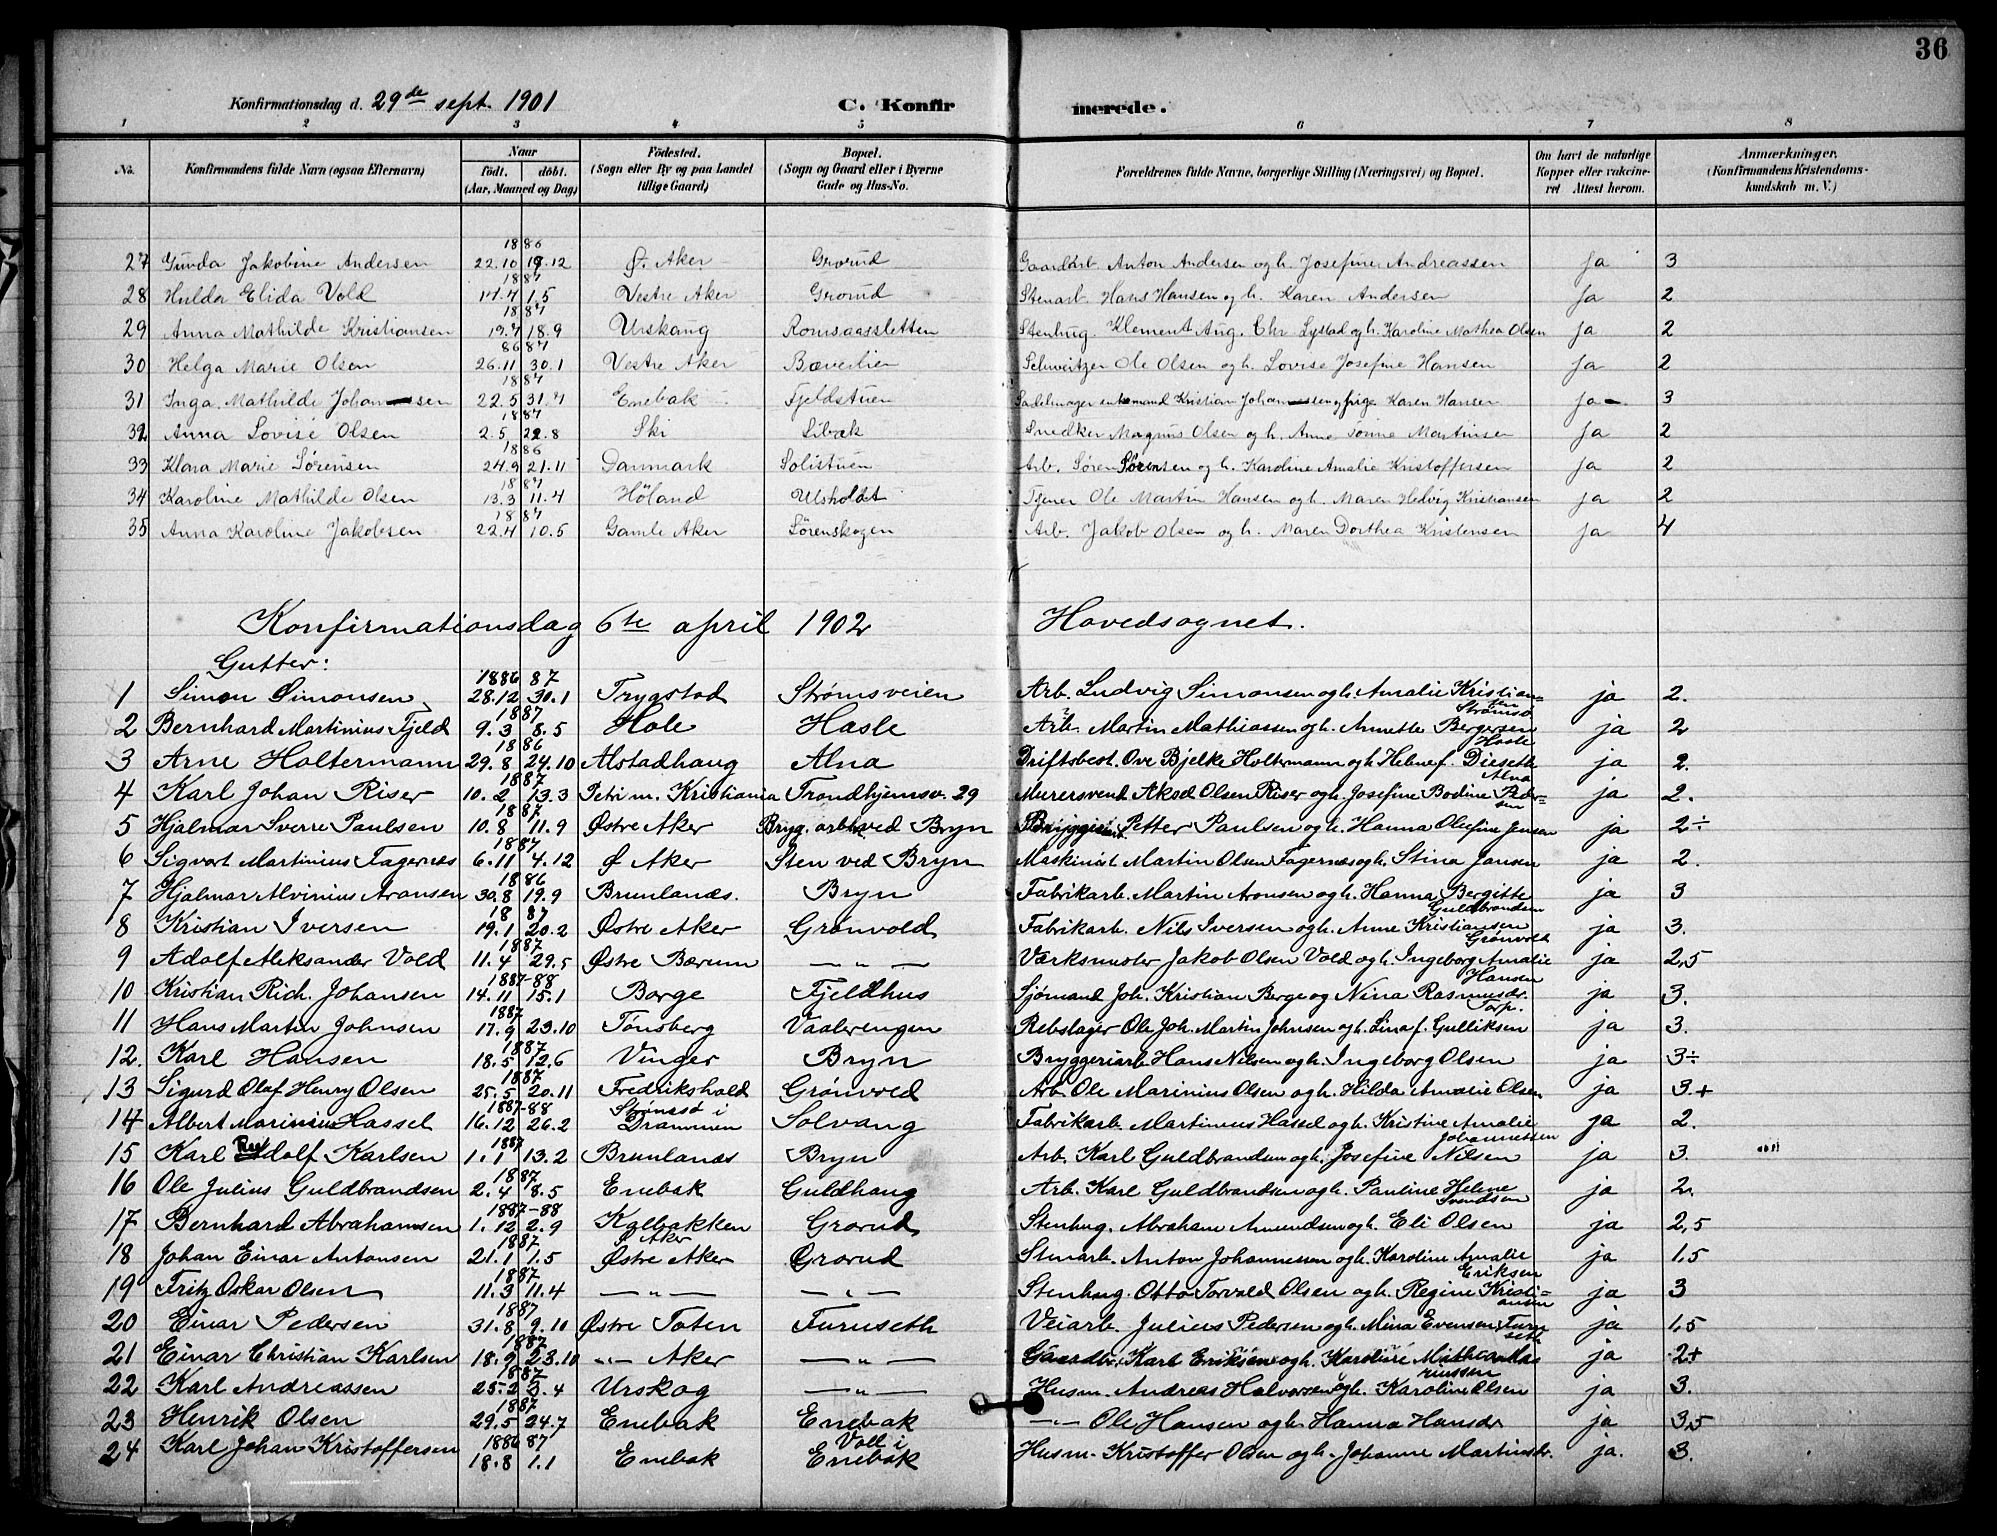 36
Konfirmationsdag d. 29de sept. 1901 C. Konfirmerede.
1 2 3 4 5 6 7 8
No. Konfirmandens fulde Navn (ogsaa Efternavn) Naar født. døbt. (Aar, Maaned og Dag) Fødested. (Sogn eller By og paa Landet tillige Gaard) Bopæl. (Sogn og Gaard eller i Byerne Gade og Hus-No.) Forældrenes fulde Navne, borgerlige Stilling (Næringsvei) og Bopæl. Om havt de naturlige Kopper eller vakcineret Attest herom. Anmærkninger. (Konfirmandens Kristendomskundskab m. V.)
1886
27 Gunda Jakobine Andersen 22.10 19.12 Ø. Aker Grorud Gaardarb. Anton Andersen og h. Josefine Andreassen Ja 3
1887
28 Hulda Elida Vold 17.4 1.5 Vestre Aker Grorud Stenarb. Hans Hansen og h. Karen Andersen Ja 2
1887
29 Anna Mathilde Kristiansen 19.7 18.9 Urskaug Romsaassletten Stenhug. Klement Aug. Chr. Lystad og h. Karoline Mathea Olsen Ja 2
86 87
30 Helga Marie Olsen 26.11 30.1 Vestre Aker Bæverlien Schweitzer Ole Olsen og h. Lovise Josefine Hansen Ja 2
1887
31 Inga Mathilde Johansen 22.5 31.7 Enebak Fjeldstuen Sadelmager enkemand Kristian Johansen og pige Karen Hansen Ja 3
1887
32 Anna Lovise Olsen 2.5 28.8 Ski Libak Snedker Magnus Olsen og h. Anne Tonine Martinsen Ja 2
1886
33 Klara Marie Sørensen 24.9 21.11 Danmark Solistuen Arb. Søren Sørensen og h. Karoline Amalie Kristoffersen Ja 2
1887
34 Karoline Mathilde Olsen 13.3 11.4 Høland Ulsholdt Tjener Ole Martin Hansen og h. Maren Hedvig Kristiansen ja 2
1887
35 Anna Karoline Jakobsen 22.4 10.5 Gamle Aker Sørenskogen Arb. Jakob Olsen og h. Maren Dorthea Kristensen ja 4
Konfirmationsdag 6te april 1902 Hovedsognet.
Gutter:
1886 87
1 Simon Simonsen 28.12 30.1 Trygstad Strømsveien Arb. Ludvig Simonsen og h. Amalie Kristiansen Strømsø ja 2.
1887
2 Bernhard Martinius Fjeld 9.3 8.5 Hole Hasle Arb. Martin Mathiassen og h. Annette Bergersen Hasle ja 2
1886
3 Arne Holtermann 29.8 24.10 Alstadhaug Alna Driftsbest. Ove Bjelke Holtermann og h. Helene f. Dieseth Alna ja 2.
1887
4 Karl Johan Riser 10.2 13.3 Petri m. Kristiania Trondhjemsv. 29 Murersvend Aksel Olsen Riser og h. Josefine Bodine Pedersen ja 2.
1887
5 Hjalmar Sverre Paulsen 10.8 11.9 Østre Aker Bryg. arb. ved Bryn Petter Paulsen og h. Hanna Olufine Jensen ja 2÷
1887
6 Sigvart Martinius Fagernæs 6.11 4.12 Ø Aker Sten ved Bryn Maskinist Martin Olsen Fagernæs og h. Stina Jansen ja 2.
1886
7 Hjalmar Alvinius Aronsen 30.8 19.9 Brunlanæs. Bryn Fabrikarb. Martin Aronsen og h. Hanna Bergitte Guldbrandsen ja 3
1887
8 Kristian Iversen 19.1 20.2 Østre Aker Grønvold Fabrikarb. Nils Iversen og h. Anne Kristiansen Grønvold ja 3.
1887
9 Adolf Aleksander Vold 11.4 29.5 Østre Bærum — " — Værksmester Jakob Olsen Vold og h. Ingeborg Amalie Hansen ja 2,5
1887-88
10 Kristian Rich. Johansen 14.11 15.1 Borge Fjeldhus Sjømand Joh. Kristian Berge og Nina Rasmusdr. Torp. ja 3.
1887
11 Hans Martin Johnsen 17.9 23.10 Tønsberg Vaalerengen Rebslager Ole Joh. Martin Johnsen og h. Lina f. Gulliksen ja 3.
1887
12. Karl Hansen 18.5 12.6 Vinger Bryn Bryggeriarb. Hans Nilsen og h. Ingeborg Olsen ja 3÷
1887
13 Sigurd Olaf Henry Olsen 25.5 20.11 Fredrikshald Grønvold Arb. Ole Marinius Olsen og h. Hilda Amalie Olsen ja 3.+
1887-88
14 Albert Marinius Hassel 16.12 26.2 Strømsø i Drammen Solvang Fabrikarb. Martinius Hassel og h. Kristine Amalie Johannessen ja 2.
1887
15 Karl Adolf Karlsen 1.1 13.2 Brunlanæs Bryn Arb. Karl Guldbrandsen og h. Josefine Nilsen ja 3.
1887
16 Ole Julius Guldbrandsen 2.4 8.5 Enebak Guldhaug Arb. Karl Guldbrandsen og h. Pauline Helene Svendsen ja 2.
1887-88
17 Bernhard Abrahamsen 1.12 2.9 Kalbakken Ø Aker Grorud Stenhug. Abraham Amundsen og h. Eli Olsen ja 2,5
1887
18 Johan Einar Antonsen 21.1 1.5 Østre Aker Grorud Stenarb. Anton Johannesen og h. Karoline Amalie Eriksen ja 1,5
1887
19 Fritz Oskar Olsen 11.3 11.4 — " — — " — Stenhug. Otto Torvald Olsen og h. Regine Kristiansen ja 3
1887
20 Einar Pedersen 31.8 9.10 Østre Toten Furuseth Veiarb. Julius Pedersen og h. Mina Evensen Furuseth ja 1,5
1887
21 Einar Christian Karlsen 18.9 23.10 " Aker — " — Karl Eriksen og h. Karoline ja 2+
1887
22 Karl Andreassen 25.2 3.4 Urskog — " — Husm. Andreas Halvorsen og h. Karoline Olsen ja 3.
1887
23 Henrik Olsen 29.5 24.7 Enebak Enebak — " — Ole Hansen og h. Hanna Hansdr ja 3,5
1886 87
24 Karl Johan Kristoffersen 18.8 1.1 Enebak Voll i Enebak Husm. Kristoffer Olsen og h. Johanne Martinsdr. ja. 3.